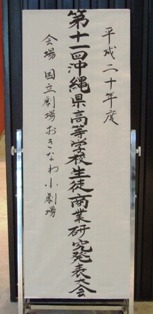 平成二十年度
第十一回沖縄県高等学校生徒商業研究発表会
会場 国立劇場おきなわ小劇場